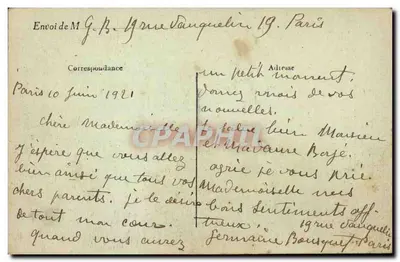 Envoi de M G. B. 19 rue Vauquelin 19. Paris
Correspondance
Paris 10 Juin 1921
chère Mademoiselle
J'espère que vous allez
bien ainsi que tous vos
chers parents. je le désire
de tout mon cœur.
quand vous aurez
Adresse
un petit moment.
donnez mois de vos
nouvelles.
bien Monsieur
et Madame Bozé.
agrié je vous prie
Mademoiselle mes
bons sentiments aff
tueux. 19 rue Vauquelin
Germaine Bousquet Paris
CPARAMA